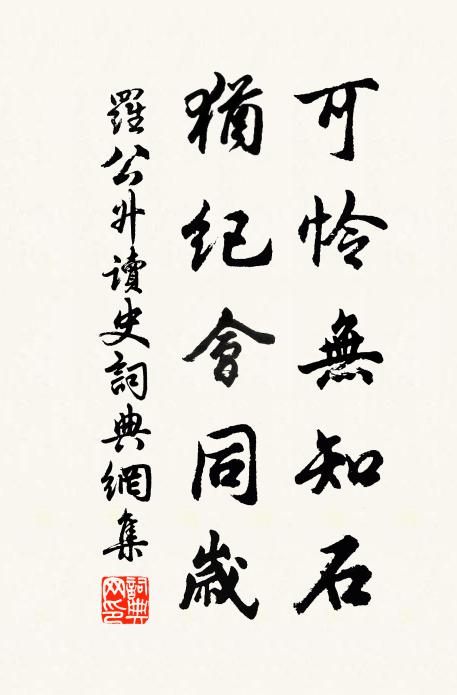 可怜無知石
猶纪會同歲
羅公升讀史詞典網集
詞典網印